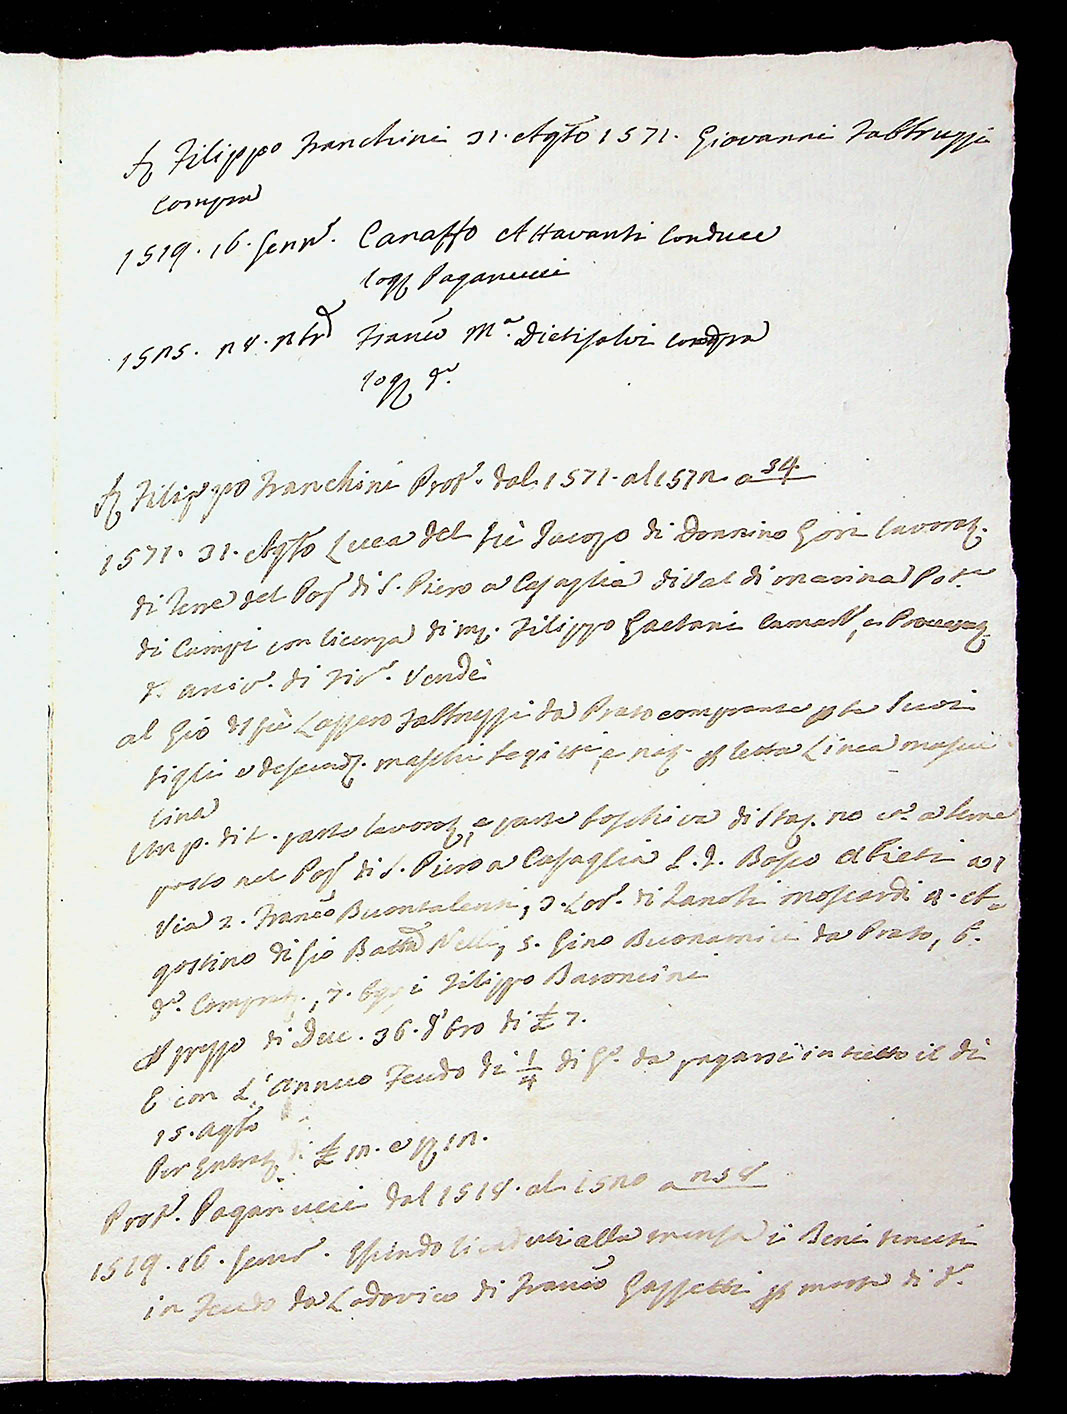 Filippo Franchini 31. Agto 1571. Giovanni Fabbruzzi
compra
1519. 16. Genn.o Canaffo Attavanti Conduce
rog. Paganucci
1525. 28. Franco Ma. Dietisalvi compra
rog. do.
Filippo Franchini Prot.o dal 1571. al 1572 a 34
1571. 31. Agto Luca del fù Jacopo di Donnino Gori lavorat.
di Terre del Pop. di S. Piero a Casaglia di Val di marina Pot.a
di Campi con licenza di m. Filippo Gaetani Camarl.o, e Proccurat.
do. arciv.o di Fir.e Vendè
al Gio del fù Lazzero Fabbruzzi da Prato comprante per se suoi
figli e descend. maschi legitti, e nat. per retta Linea mascu
lina
Un p. di t. parte lavorat., e parte boschiva di stag. 20 c.a a seme
posto nel Pop. di S. Piero a Casaglia l. d. Bosco Abieti a 1
Via 2. Franco Buontalenti, 3. Lor.o di Zanobi Moscardi 4. A-
gostino di Gio Batta Nelli, 5. Gino Buonamici da Prato, 6.
do. Comprat., 7. Filippo Baroncini
prezzo di Duc. 36. d'oro di £ 7.
E con L'annuo Feudo di 1/4 di Go. da pagarsi in tutto il dì
15. Agto
Per Entrat. di £ 12. e 12.
Prot.o Paganucci dal 1518. al 1520 a 258
1519. 16. Genn.o Essendo ricaduti alla mensa i Beni tenuti
in Feudo da Lodovico di Franco Gazzetti per morte di do.